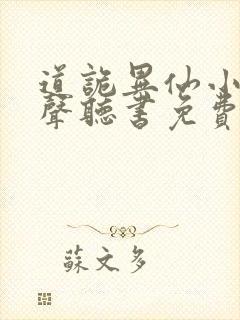 道詭異仙小
聲聽書免費
蘇文多